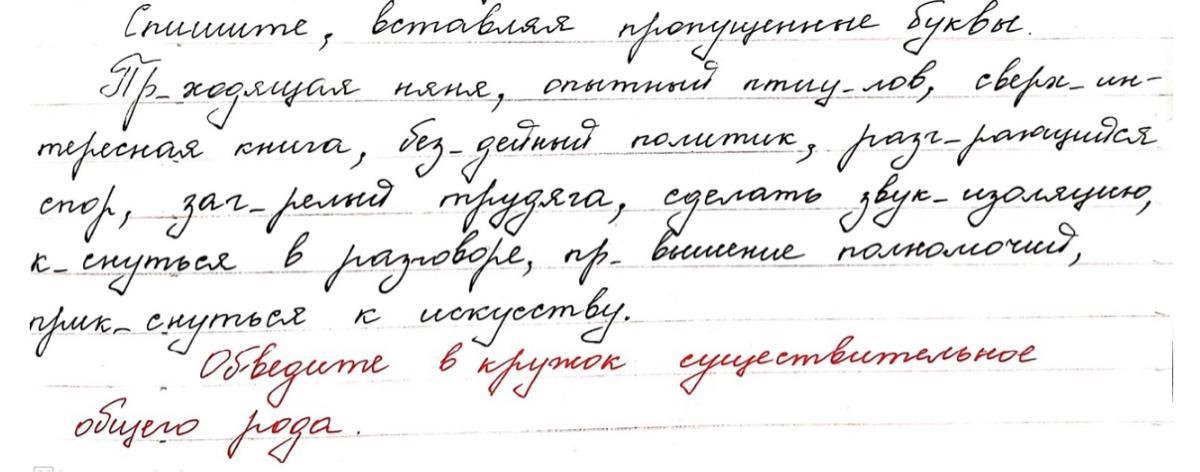 Спишите, вставляя пропущенные буквы.
Пр_ходящая няня, опытный птиц_лов, сверх_ин-
тересная книга, без_дейный политик, разг_рающийся
спор, заг_релый трудяга, сделать звук_изоляцию,
к_снуться в разговоре, пр_вышение полномочий,
прик_снуться к искусству.
Обведите в кружок существительное
общего рода.